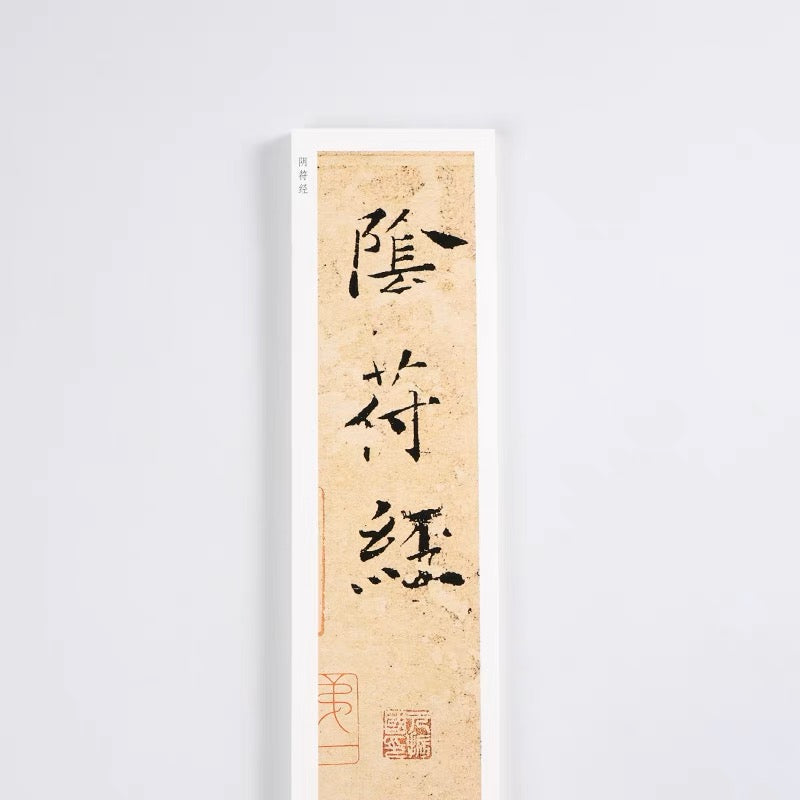 阴符经
陰符經